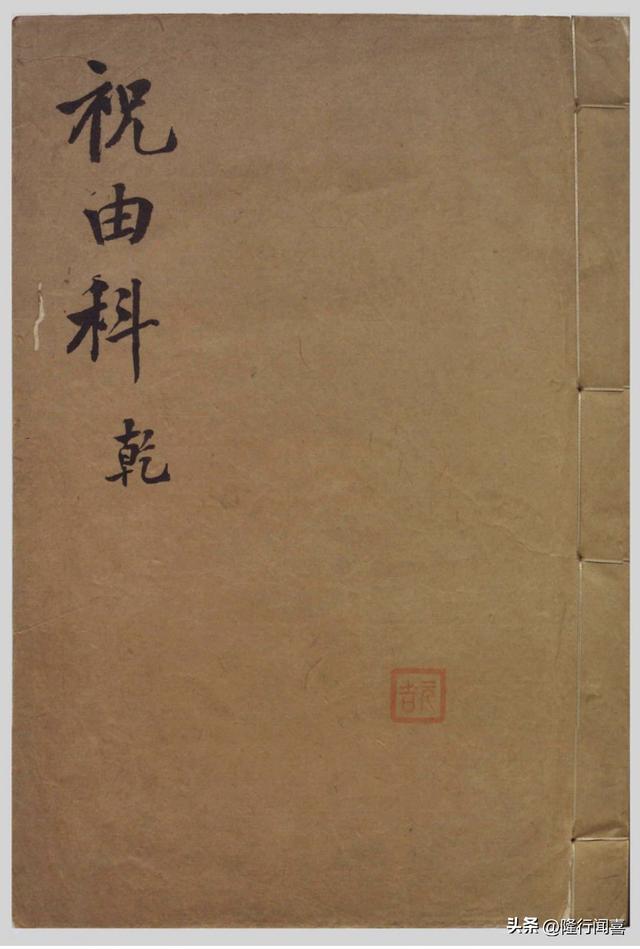 祝由科 乾
头条 @隆行闻喜